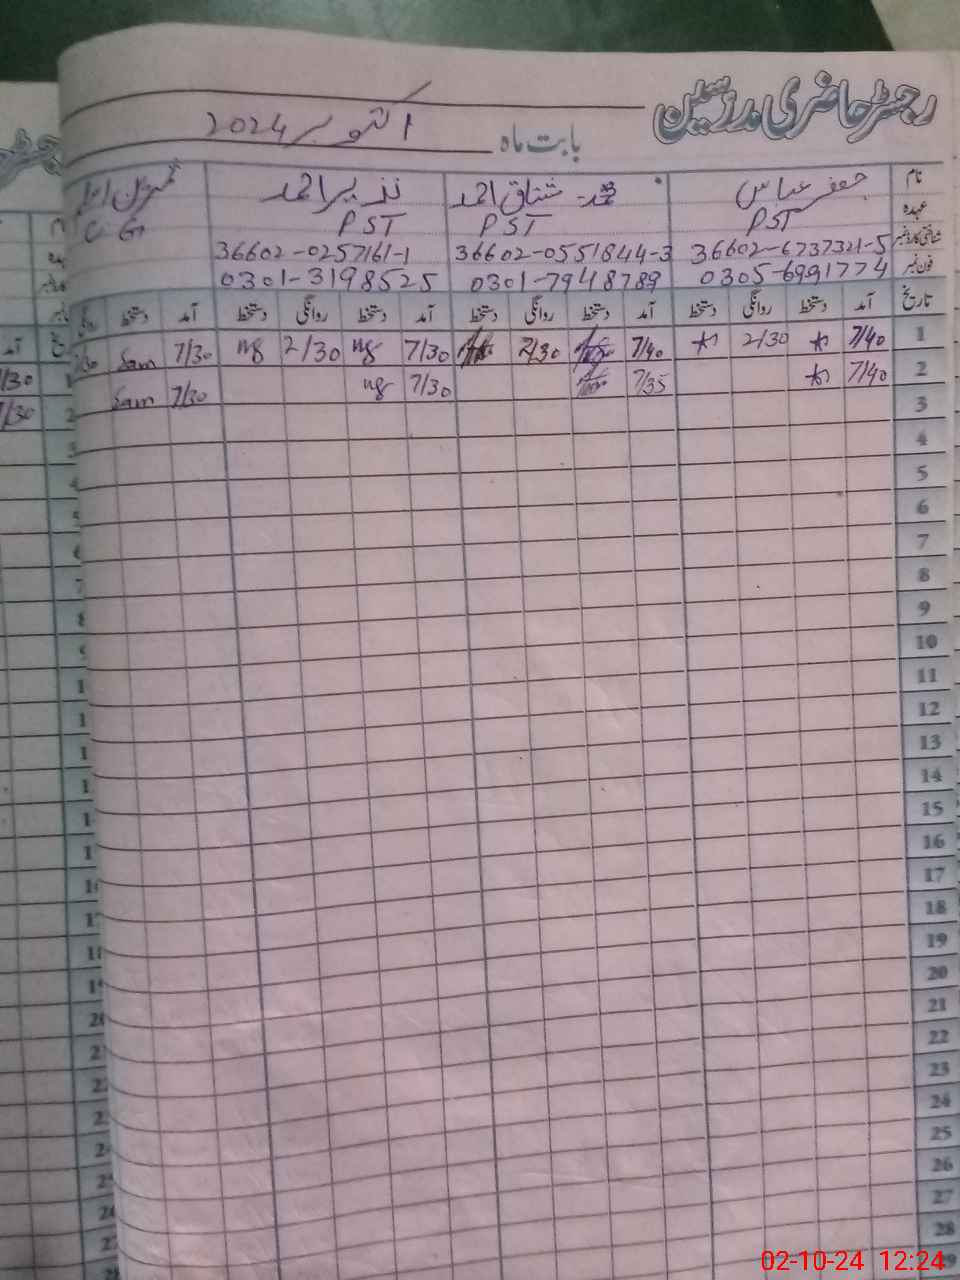 رجسٹر حاضری مدرسین
بابت ماہ اکتوبر 2024
نام جعفر عباس محمد مشتاق احمد نذیر احمد
عہدہ PST PST PST C.G
شناختی کارڈ نمبر 36602-6737321-5 36602-0551844-3 36602-0257161-1
فون نمبر 0305-6991774 0301-7948789 0301-3198525
تاریخ آمد دستخط روانگی دستخط آمد دستخط روانگی دستخط آمد دستخط روانگی دستخط آمد دستخط
1 7/40 2/30 7/40 2/30 7/30 ng 2/30 ng 7/30 Sam
2 7/40 7/35 7/30 ng 7/30 Sam
3
4
5
6
7
8
9
10
11
12
13
14
15
16
17
18
19
20
21
22
23
24
25
26
27
28
02-10-24 12:24